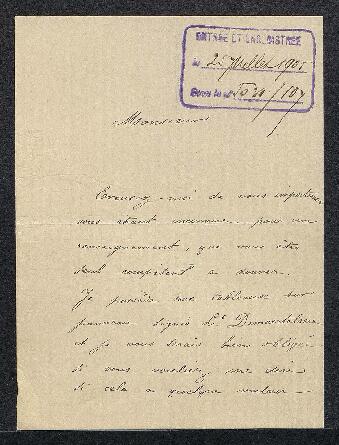 ENTRÉE ET ENREGISTRÉE
le 25 Juillet 1905
Sous le n°
Monsieur
Excusez-moi de vous importuner
vous étant inconnue pour un
renseignement, que vous êtes
seul compétent a donner.
Je possède un tableau sur
panneau signé L. Dumortelaine
et je vous serais bien obligé
si vous vouliez me dire
si cela a quelque valeur —